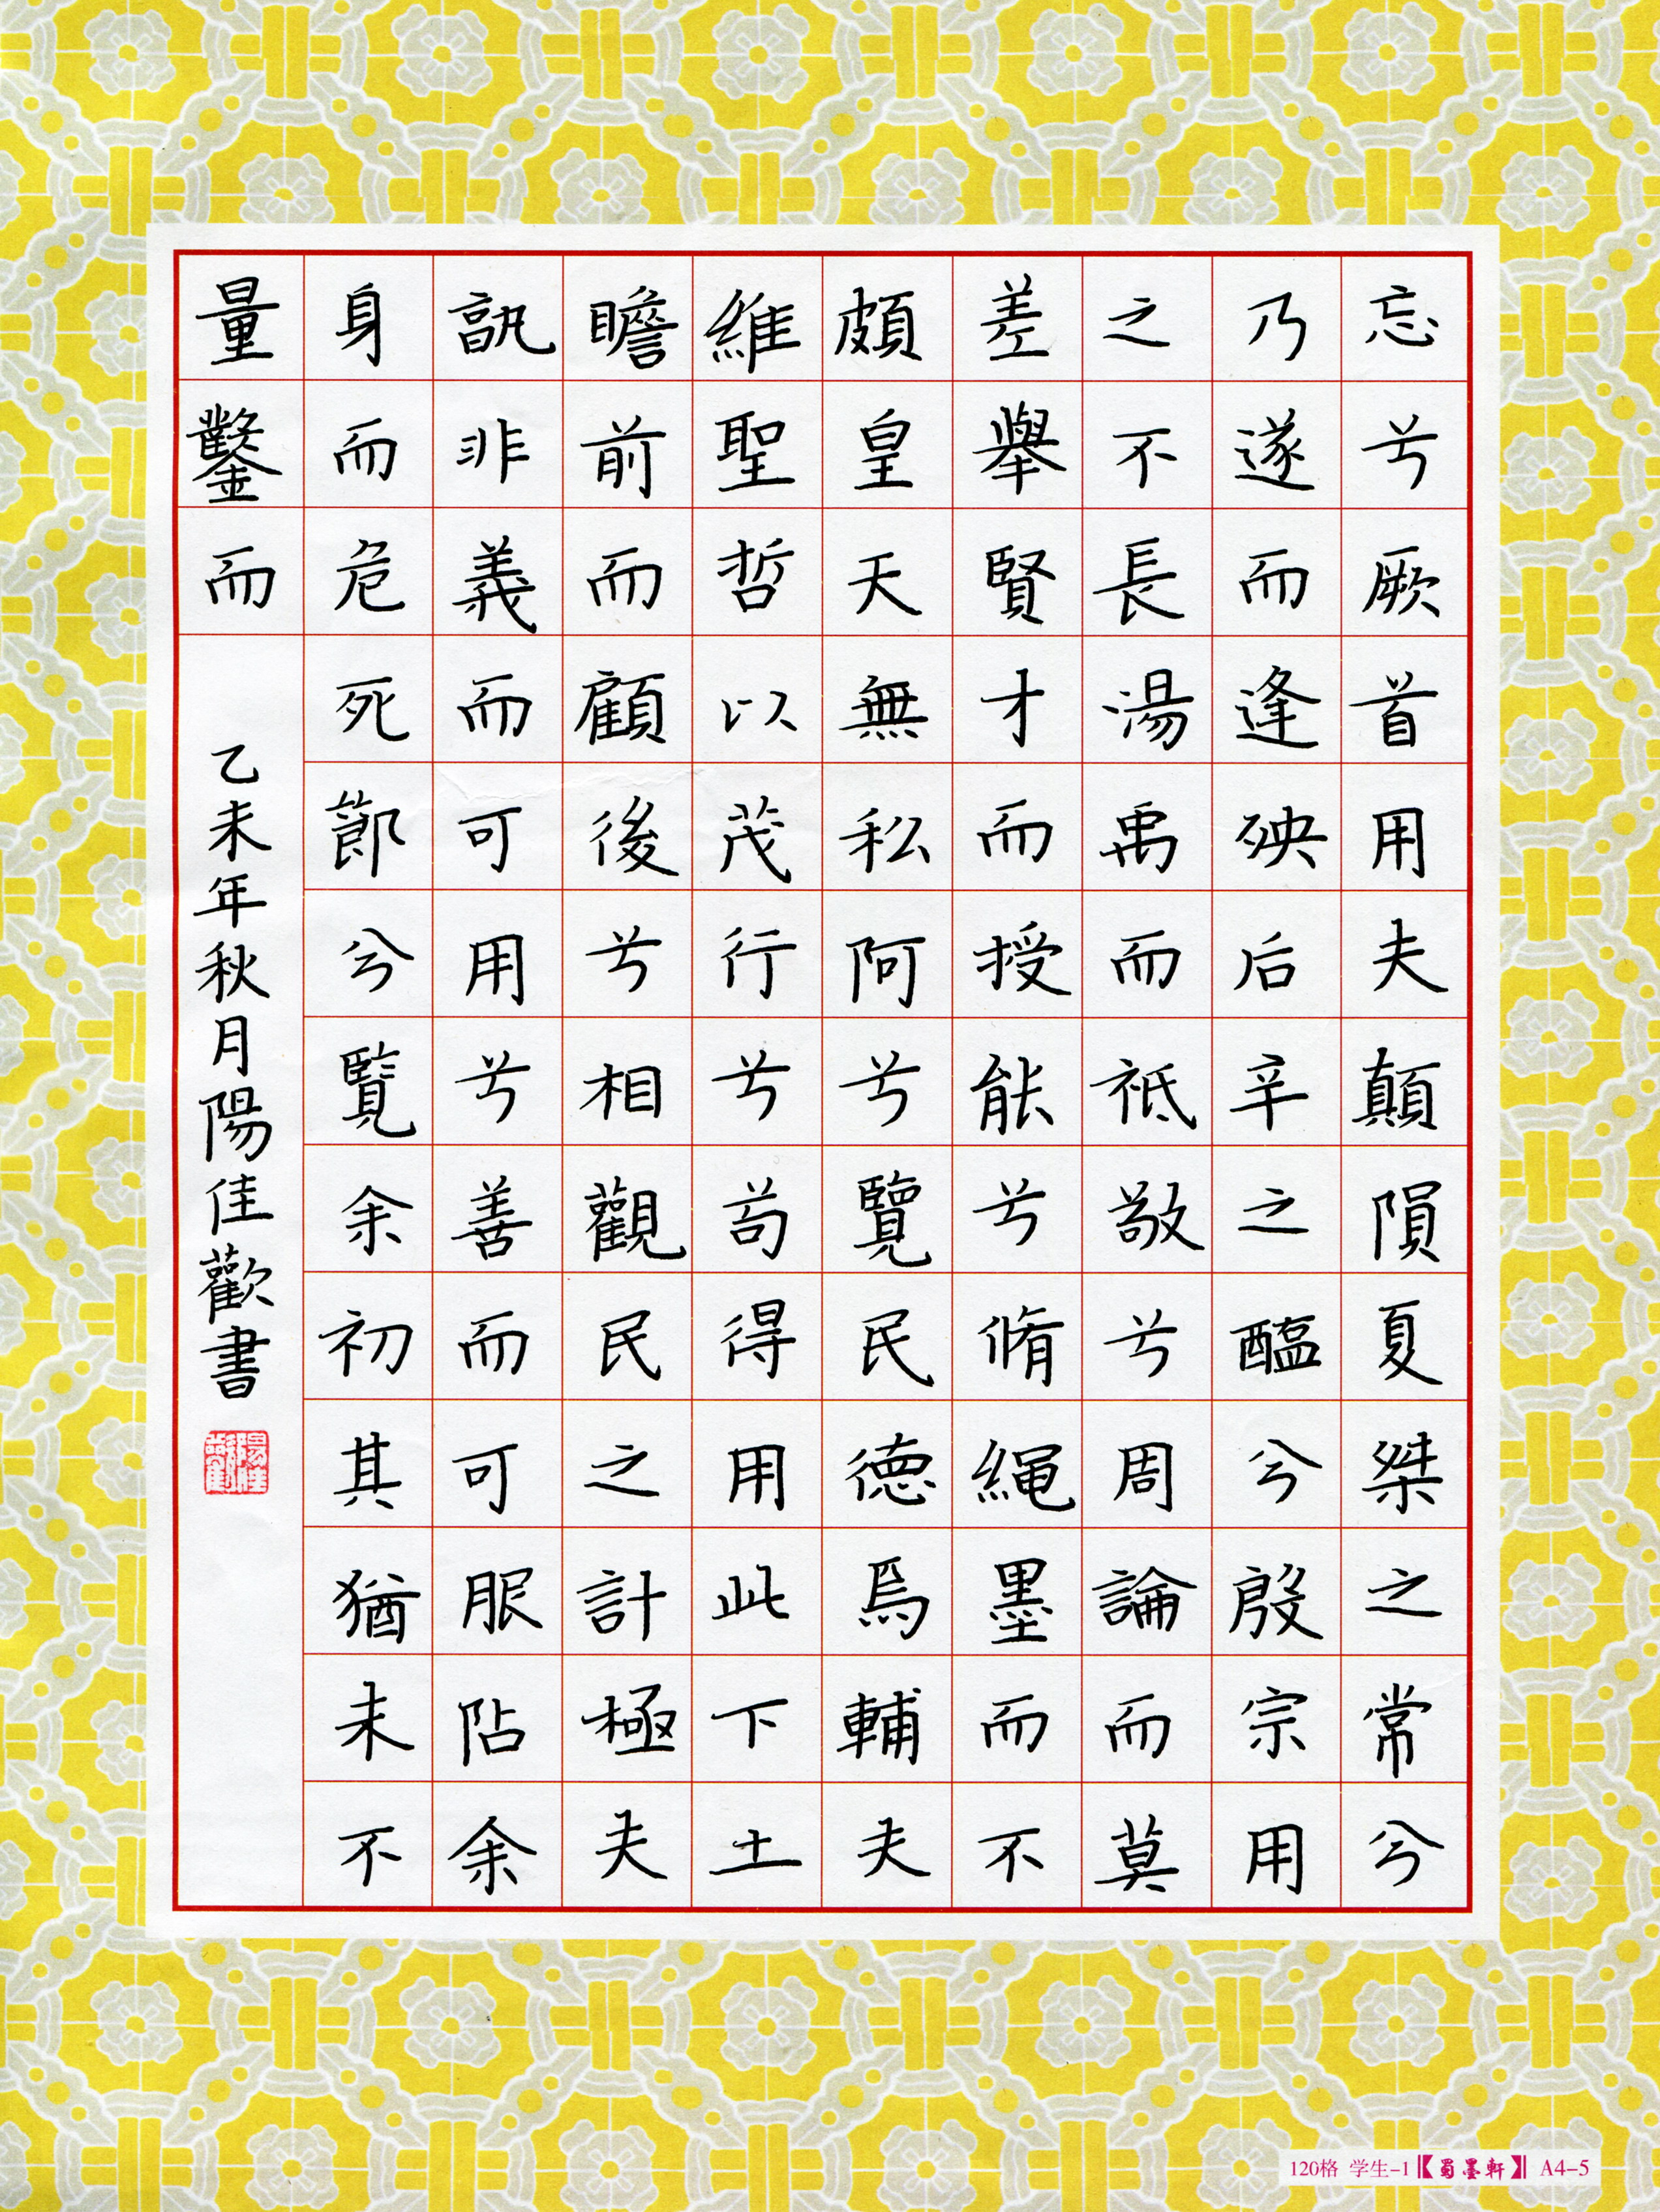 忘兮厥首用夫顛隕夏桀之常兮
乃遂而逢殃后辛之醢兮殷宗用
之不長湯禹而祗敬兮周論而莫
差舉賢才而授能兮脩繩墨而不
頗皇天無私阿兮覽民德焉輔夫
維聖哲以茂行兮苟得用此下土
瞻前而顧後兮相觀民之計極夫
孰非義而可用兮善而可服阽余
身而危死節兮覽余初其猶未不
量鑿而
乙未年秋月陽佳歡書
120格 学生-1【蜀墨軒】A4-5